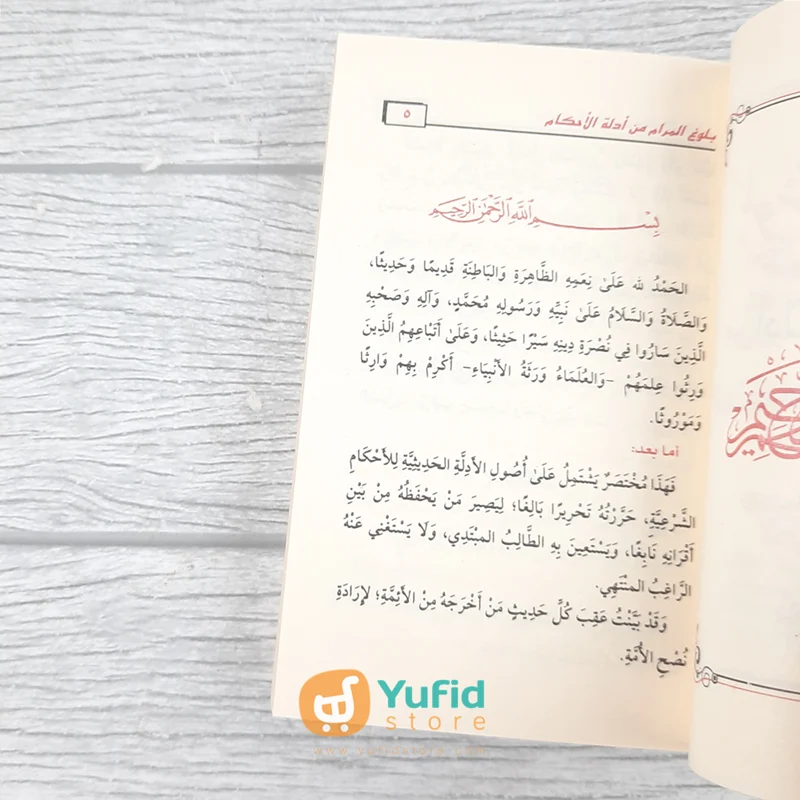 بلوغ المرام من أدلة الأحكام
٥
بِسْمِ ٱللَّهِ ٱلرَّحْمَٰنِ ٱلرَّحِيمِ
الحَمْدُ لله عَلَىٰ نِعَمِهِ الظَّاهِرَةِ وَالبَاطِنَةِ قَدِيمًا وَحَدِيثًا،
وَالصَّلَاةُ وَالسَّلَامُ عَلَىٰ نَبِيِّهِ وَرَسُولِهِ مُحَمَّدٍ، وَآلِهِ وَصَحْبِهِ
الَّذِينَ سَارُوا فِي نُصْرَةِ دِينِهِ سَيْرًا حَثِيثًا، وَعَلَىٰ أَتْبَاعِهِمُ الَّذِينَ
وَرِثُوا عِلمَهُمْ -وَالعُلَمَاءُ وَرَثَةُ الأَنْبِيَاءِ- أَكْرِمْ بِهِمْ وَارِثًا
وَمَوْرُوثًا.
أما بعد:
فَهَذَا مُخْتَصَرٌ يَشْتَمِلُ عَلَىٰ أُصُولِ الأَدِلَّةِ الحَدِيثِيَّةِ لِلأَحْكَامِ
الشَّرْعِيَّةِ، حَرَّرْتُهُ تَحْرِيرًا بَالِغًا؛ لِيَصِيرَ مَنْ يَحْفَظُهُ مِنْ بَيْنِ
أَقْرَانِهِ نَابِغًا، وَيَسْتَعِينَ بِهِ الطَّالِبُ المبْتَدِي، وَلَا يَسْتَغْنِي عَنْهُ
الرَّاغِبُ المنْتَهِي.
وَقَدْ بَيَّنْتُ عَقِبَ كُلِّ حَدِيثٍ مَنْ أَخْرَجَهُ مِنْ الأَئِمَّةِ؛ لإِرَادَةِ
نُصْحِ الأُمَّةِ.
Yufid
store
www.yufidstore.com